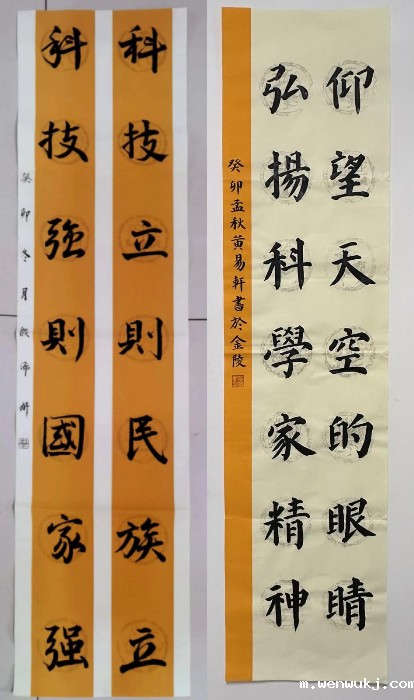 科技立則民族立
科技強則國家强
癸卯冬月
仰望天空的眼睛
弘揚科學家精神
癸卯孟秋黄易軒書於金陵
m.wenwukj.com